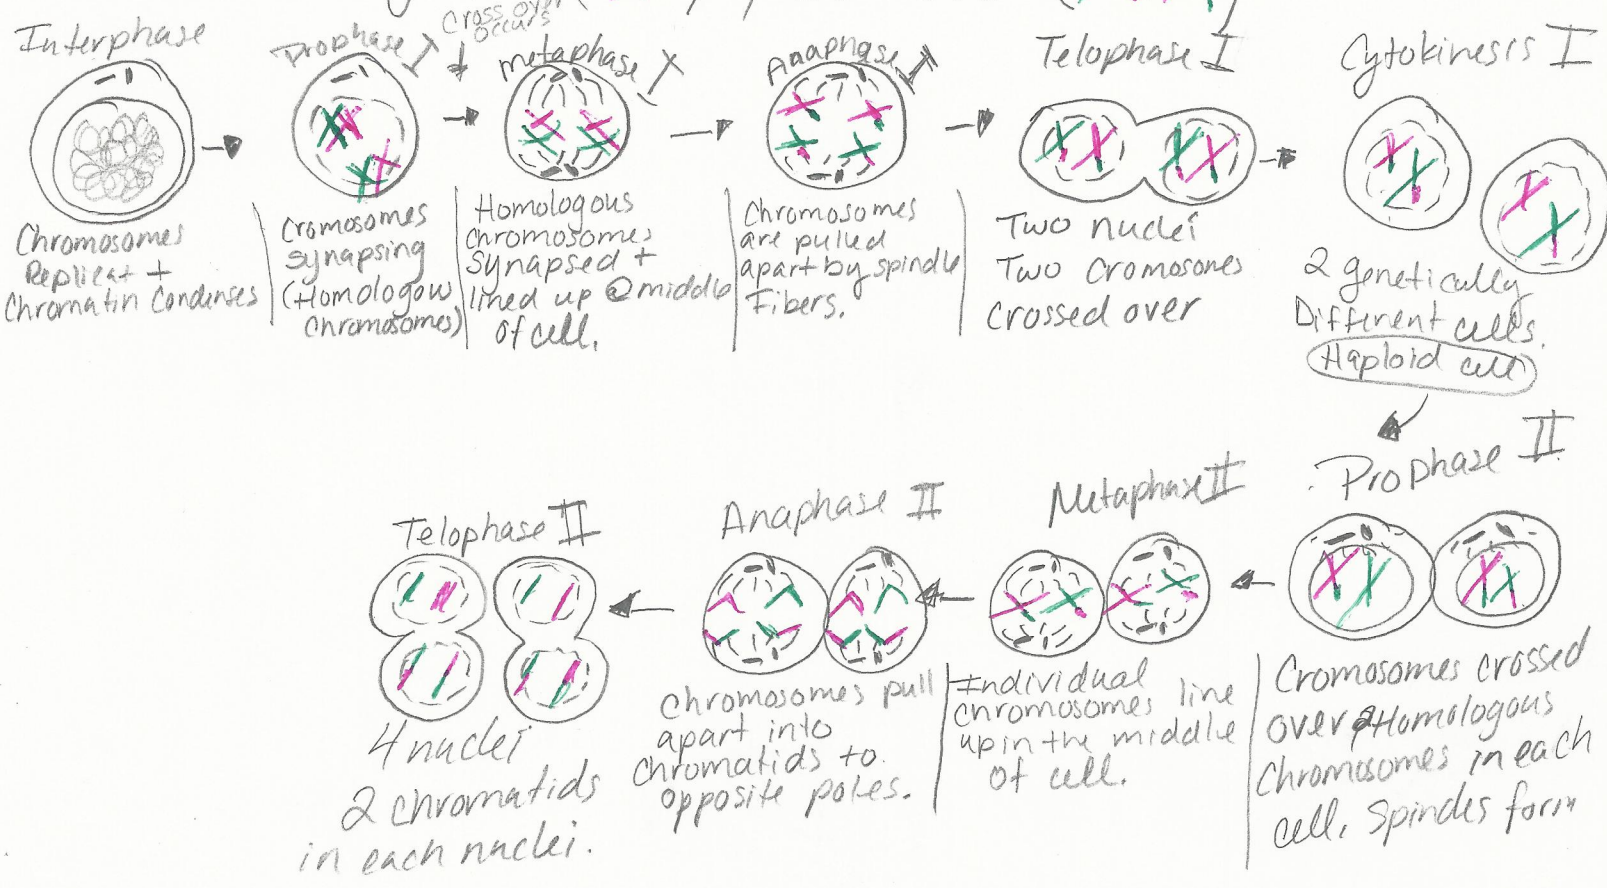 Interphase
Chromosomes
Replicat +
Chromatin Condenses
Prophase I
Cross over
occurs
Cromosomes
synapsing
(Homologow
chromosomes)
metaphase I
Homologous
chromosomes
synapsed +
lined up @ middle
of cell.
Anaphase I
Chromosomes
are pulled
apart by spindle
Fibers.
Telophase I
Two nuclei
Two cromosones
crossed over
Cytokinesis I
2 genetically
Different cells.
Haploid cell
Prophase II
Cromosomes crossed
over 2 Homologous
chromosomes in each
cell. Spindles form
Metaphase II
Individual
chromosomes line
up in the middle
of cell.
Anaphase II
Chromosomes pull
apart into
chromatids to
opposite poles.
Telophase II
4 nuclei
2 chromatids
in each nuclei.